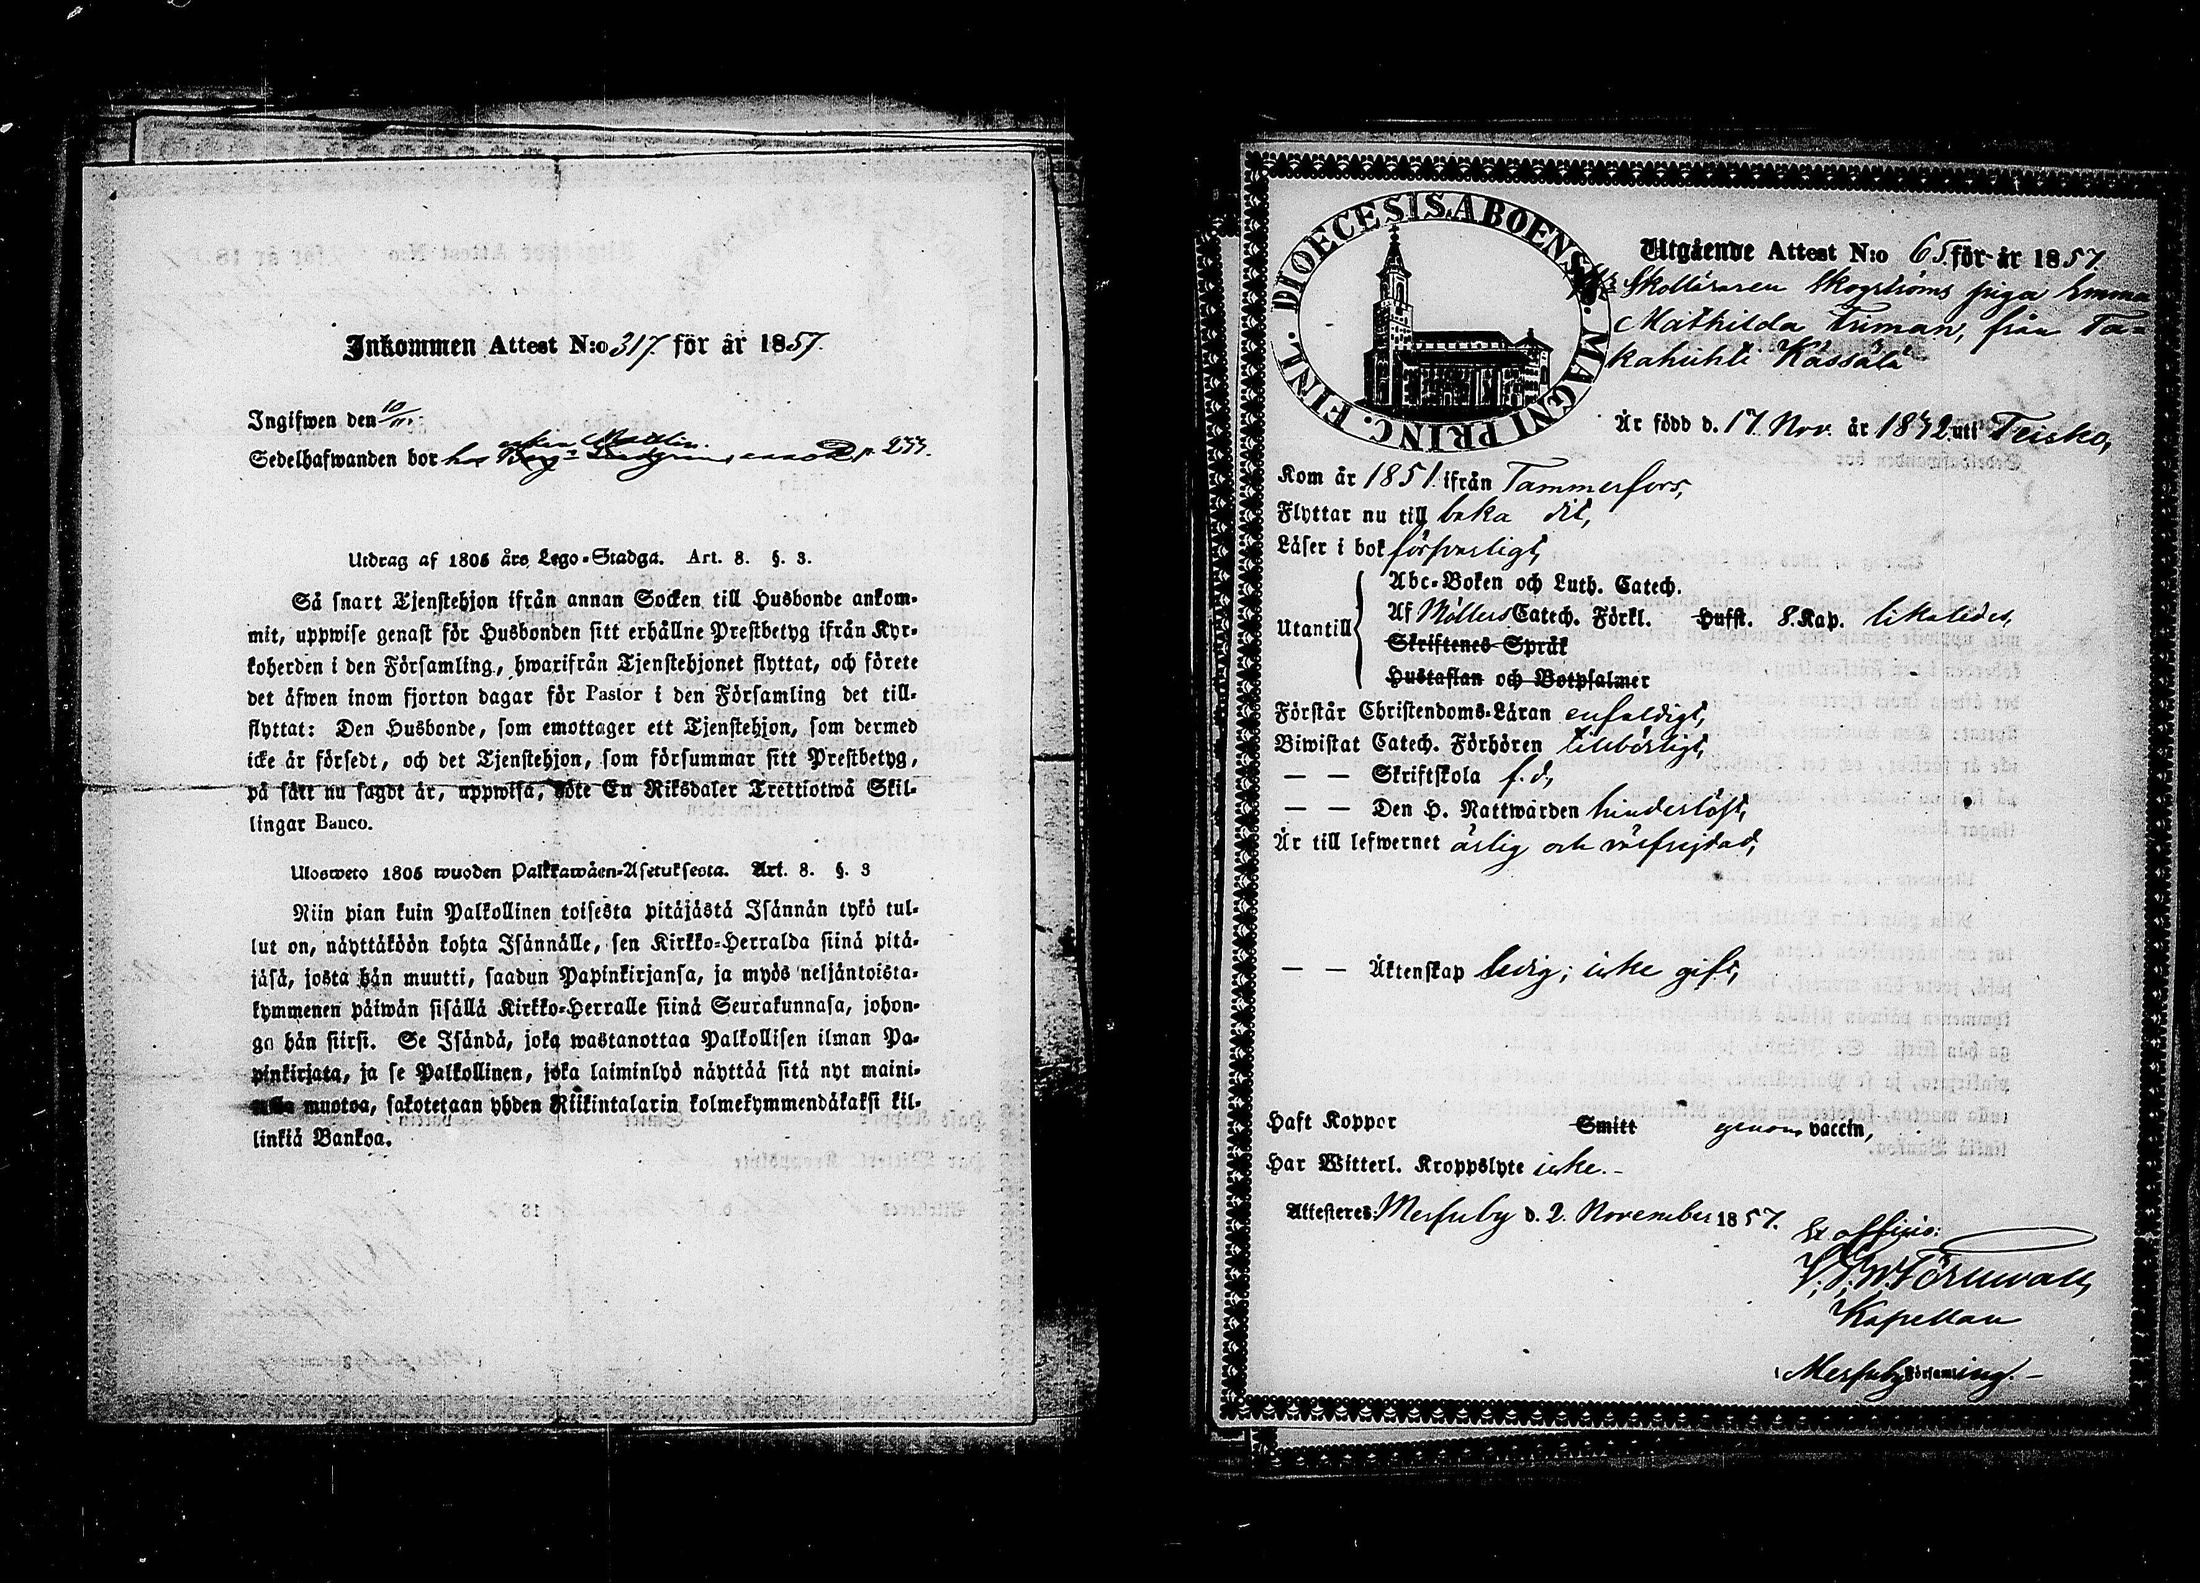 Inkommen Attest N:o 317. för år 1857.
Ingifwen den 10/11.
enkan Mattlin.
Sedelhafwanden bor hos p. 233.
Utdrag af 1805 års Lego-Stadga. Art. 8. §. 3.
Så snart Tjenstehjon ifrån annan Socken till Husbonde ankom-
mit, uppwise genast för Husbonden sitt erhållne Prestbetyg ifrån Kyr-
koherden i den Församling, hwarifrån Tjenstehjonet flyttat, och förete
det äfwen inom fjorton dagar för Pastor i den Församling det till-
flyttat: Den Husbonde, som emottager ett Tjenstehjon, som dermed
icke är försedt, och det Tjenstehjon, som försummar sitt Prestbetyg,
på sätt nu sagdt är, uppwisa, böte En Riksdaler Trettiotwå Skil-
lingar Banco.
Ulosweto 1805 wuoden Palkkawäen-Asetuksesta. Art. 8. §. 3
Niin pian kuin Palkollinen toisesta pitäjästä Isännän tykö tul-
lut on, näyttäköön kohta Isännälle, sen Kirkko-Herralda siinä pitä-
jäsä, josta hän muutti, saadun Papinkirjansa, ja myös neljäntoista-
kymmenen päiwän sisällä Kirkko-Herralle siinä Seurakunnasa, johon-
ga hän siirsi. Se Isändä, joka wastanottaa Palkollisen ilman Pa-
pinkirjata, ja se Palkollinen, joka laiminlyö näyttää sitä nyt maini-
muotoa, sakotetaan yhden Riikintalarin kolmekymmendäkaksi kil-
linkiä Bankoa.
DIOECESIS ABOENSIS. MAGNI PRINC. FINL.
Utgående Attest N:o 65. för år 1857.
Skolläraren Skogströms piga Emma
Mathilda Friman, från Ta-
kahuhti Kässälä
Är född d. 17. Nov. år 1832 uti Teisko,
Kom år 1851. ifrån Tammerfors,
Flyttar nu till baka dit,
Läser i bok försvarligt,
Abc-Boken och Luth. Catech.
Utantill Af Möllers Catech. Förkl. Hufst. 8. Kap. likaledes,
Skriftenes Språk
Hustaflan och Botpsalmer
Förstår Christendoms-Läran enfaldigt,
Biwistat Catech. Förhören tillbörligt,
— — Skriftskola f. d,
— — Den H. Nattwarden hinderlöst,
Är till lefwernet ärlig och välfrejdad,
— — Äktenskap ledig; icke gift,
Haft Koppor Smitt genom vaccin,
Har Witterl. Kroppslyte icke.-
Attesteres: Messuby d. 2. November 1857.
Ex officio:
Törnwall,
Kapellan
i Messuby Församling.-